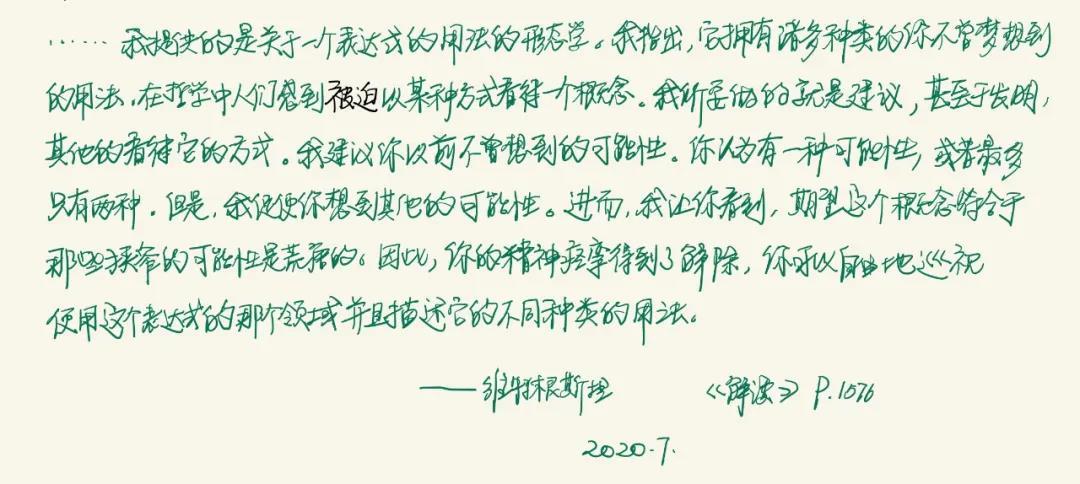 ……我提供的是关于一个表达式的用法的形态学。我指出，它拥有诸多种类的你不曾梦想到
的用法。在哲学中人们感到被迫以某种方式看待一个概念。我所要做的就是建议，甚至于发明，
其他的看待它的方式。我建议你以前不曾想到的可能性。你认为有一种可能性，或者最多
只有两种。但是，我促使你想到其他的可能性。进而，我让你看到，期望这个概念符合于
那些狭窄的可能性是荒唐的。因此，你的精神痉挛得到了解除，你可以自由地巡视
使用这个表达式的那个领域并且描述它的不同种类的用法。
——维特根斯坦 《解读》P.1576
2020.7.